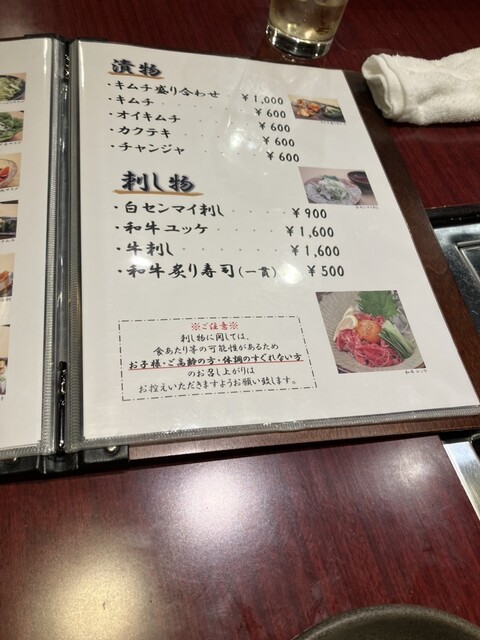 漬物
・キムチ盛り合わせ ¥1,000
・キムチ・・・・・・・¥600
・オイキムチ・・・・・¥600
・カクテキ・・・・・・¥600
・チャンジャ・・・・・¥600
刺し物
・白センマイ刺し・・・・¥900
・和牛ユッケ・・・・・¥1,600
・牛刺し・・・・・・・¥1,600
・和牛炙り寿司(一貫) ¥500
※ご注意※
刺し物に関しては、
食あたり等の可能性があるため
お子様・ご高齢の方・体調のすぐれない方
のお召し上がりは
お控えいただきますようお願い致します。
和牛ユッケ